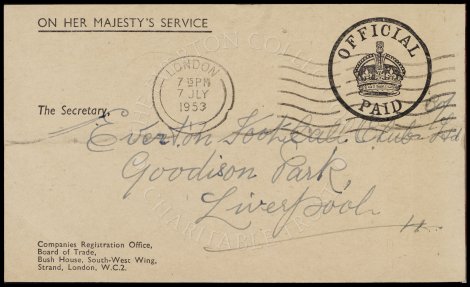 ON HER MAJESTY'S SERVICE
OFFICIAL
PAID
LONDON
7 15 PM
7 JLY
1953
The Secretary,
Everton Football Club Co
Ltd
Goodison Park,
Liverpool
Companies Registration Office,
Board of Trade,
Bush House, South-West Wing,
Strand, London, W.C.2.